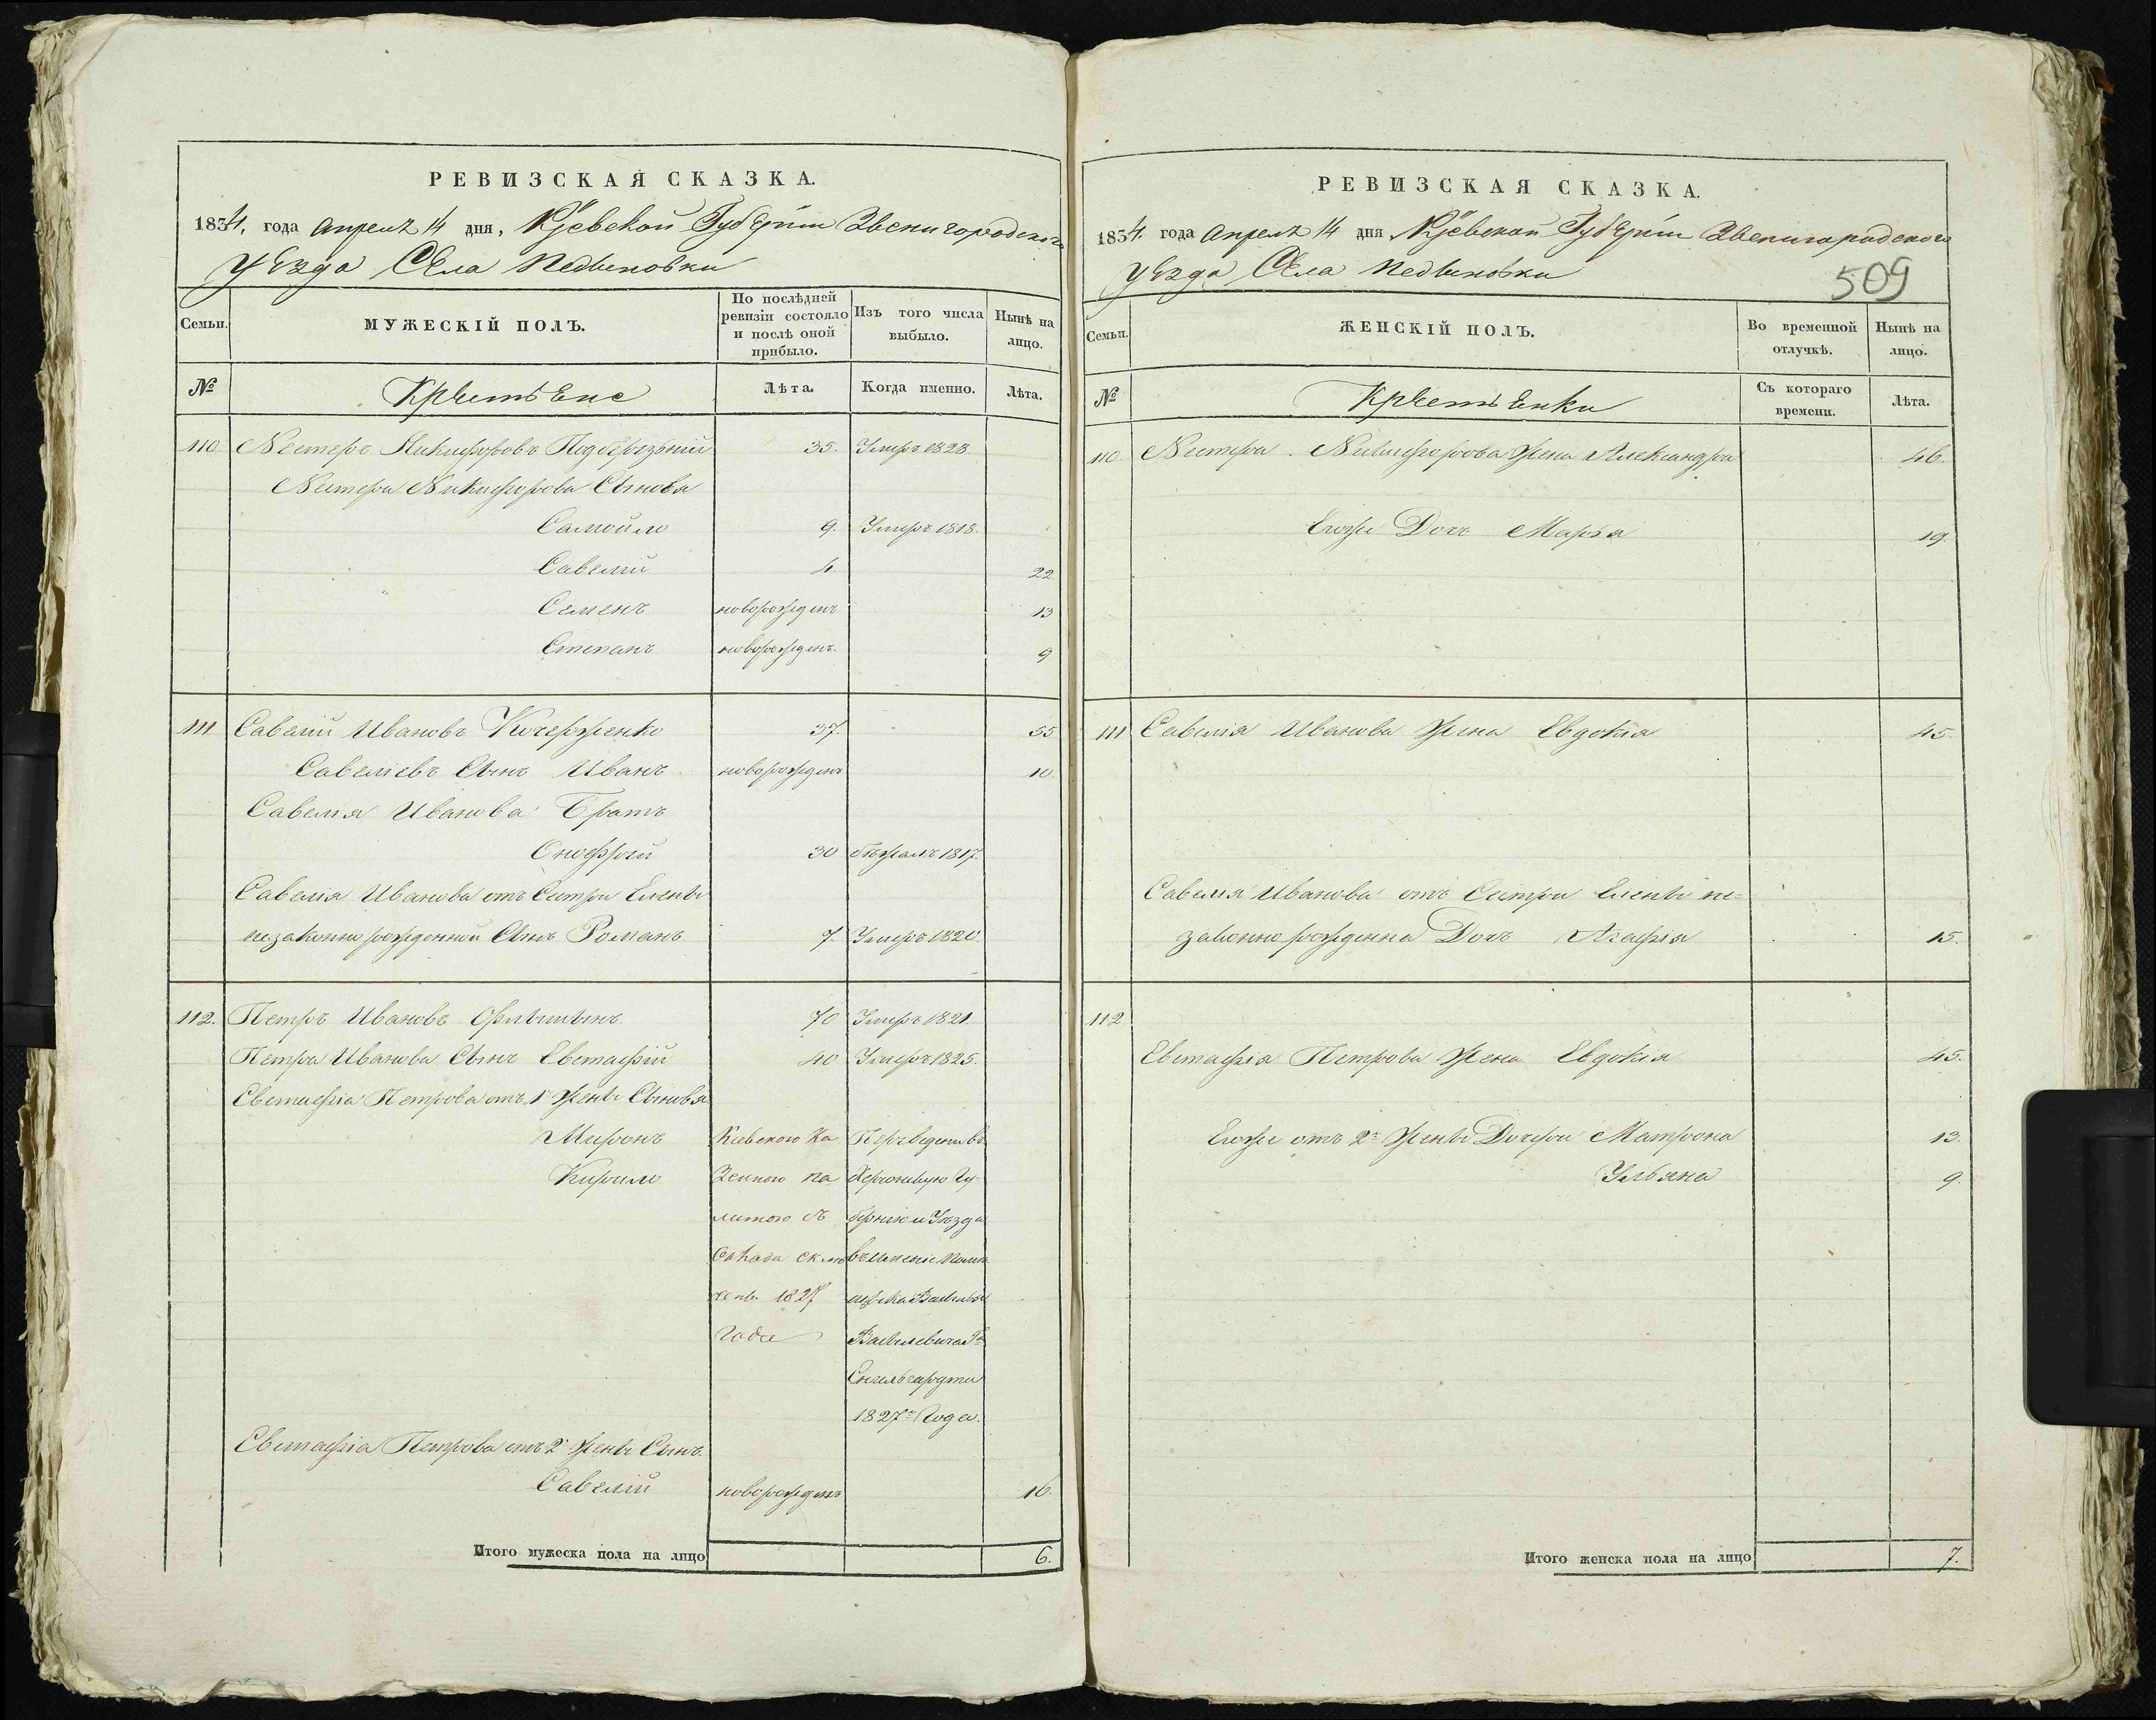 РЕВИЗСКАЯ СКАЗКА.
1834. года Апреля 14 дня, Кіевской Губерніи Звенигородского
уезда Села Педыновки
Семьи.
МУЖЕСКІЙ ПОЛЪ.
По послѣдней ревизіи состояло и послѣ оной прибыло.
Изъ того числа выбыло.
Нынѣ на лицо.
№
Крестьяне
Лѣта.
Когда именно.
Лѣта.
110 Нестеръ Никифоровъ 35. Умеръ 1828.
Нестера Никифорова Сыновья
Самойло 9. Умеръ 1818.
Савелій 4. 22
Семенъ новорожденъ 13
Степанъ новорожденъ. 9
111 Савелій Ивановъ 37. 55
Савеліевъ Сынъ Иванъ новорожденъ 10
Савелія Иванова Братъ
Онофрій 30 бежалъ 1817.
Савелія Иванова отъ Сестри Елены
незаконно рожденной Сынъ Романъ. 7. Умеръ 1820.
112. Петръ Ивановъ 70 Умеръ 1821.
Петра Иванова Сынъ Евстафій 40 Умеръ 1825.
Евстафія Петрова отъ 1й Жены Сыновья
Миронъ Киевскою Ка Переведены въ
Кирило зенною па Херсонскую Гу-
латою бернию и Уезда
въ имение Поме
1827 щика Василия
Года Василевича
Енгельгардта
1827го Года.
Евстафія Петрова отъ 2й Жены Сынъ.
Савелій новорожденъ 16.
Итого мужеска пола на лицо 6.
РЕВИЗСКАЯ СКАЗКА.
1834. года Апреля 14 дня Кіевской Губерніи Звенигородского
уезда Села Педыновки
509
Семьи.
ЖЕНСКІЙ ПОЛЪ.
Во временной отлучкѣ.
Нынѣ на лицо.
№
Крестьянки
Съ котораго времени.
Лѣта.
110. Нестера Никифорова Жена Александра 46.
Егоже Дочь Марья 19.
111 Савелія Иванова Жена Евдокія 45.
Савелія Иванова отъ Сестри Елены не=
законно рожденна Дочь Агафія 15.
112
Евстафія Петрова Жена Евдокія 45.
Егоже отъ 2й Жены Дочери Матрона 13.
Ульяна 9.
Итого женска пола на лицо 7.